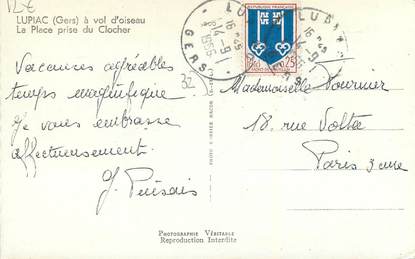 12€
LUPIAC (Gers) à vol d'oiseau
La Place prise du Clocher
Vacances agréables
temps magnifique.
Je vous embrasse
affectueusement.
REPUBLIQUE FRANÇAISE
0,25
LUPIAC
GERS
Mademoiselle Fournier
18, rue Volta
Paris 3eme
PHOTOGRAPHIE VÉRITABLE
Reproduction Interdite